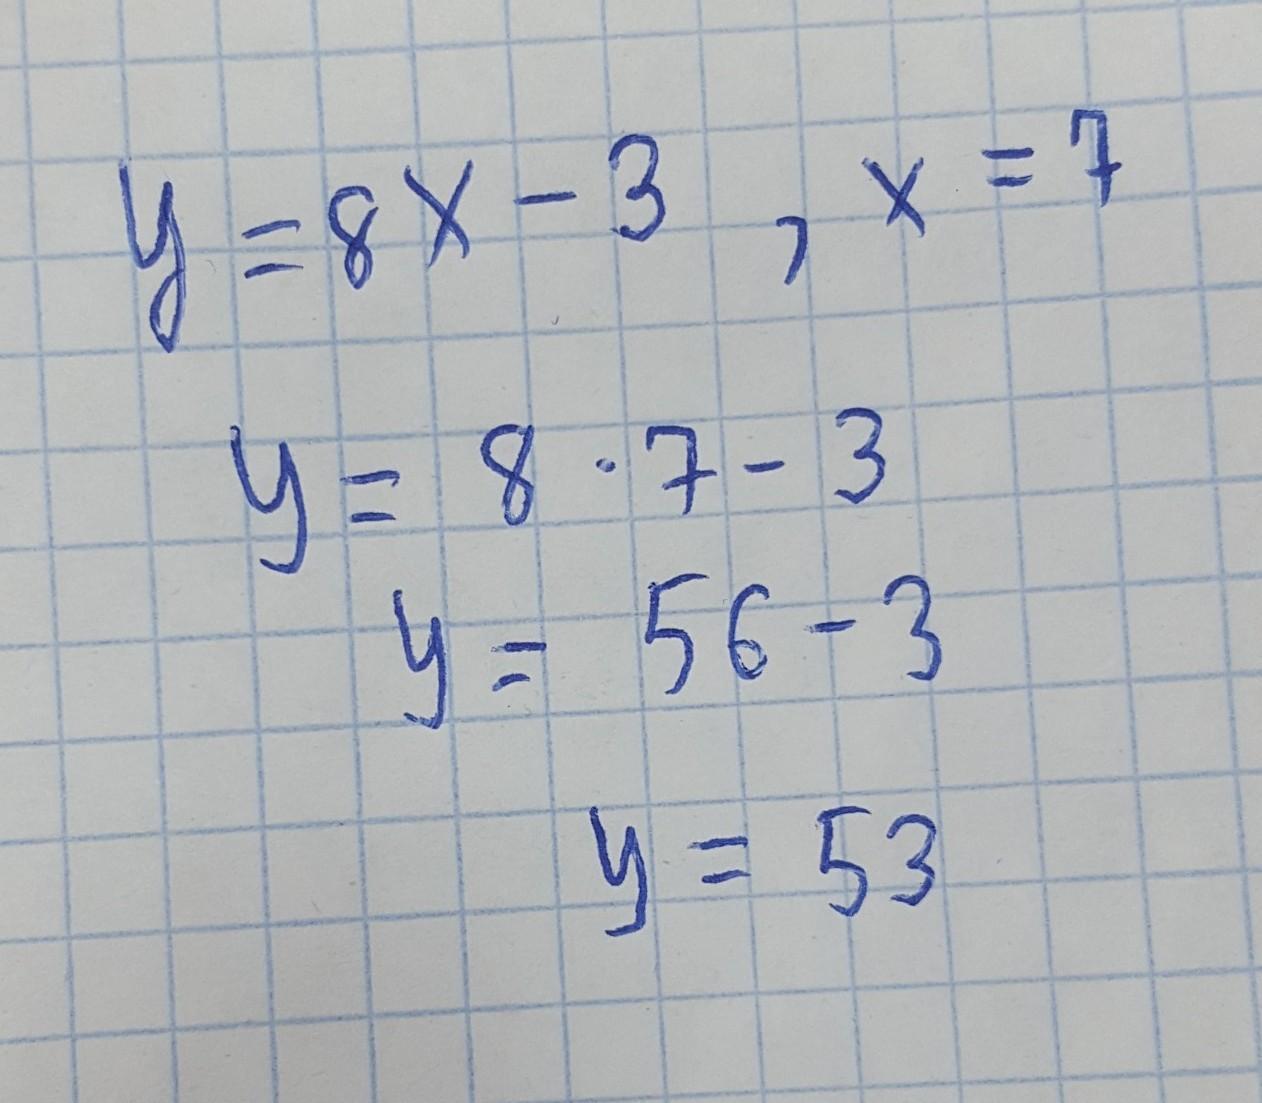 y = 8x - 3 , x = 7
y = 8 · 7 - 3
y = 56 - 3
y = 53